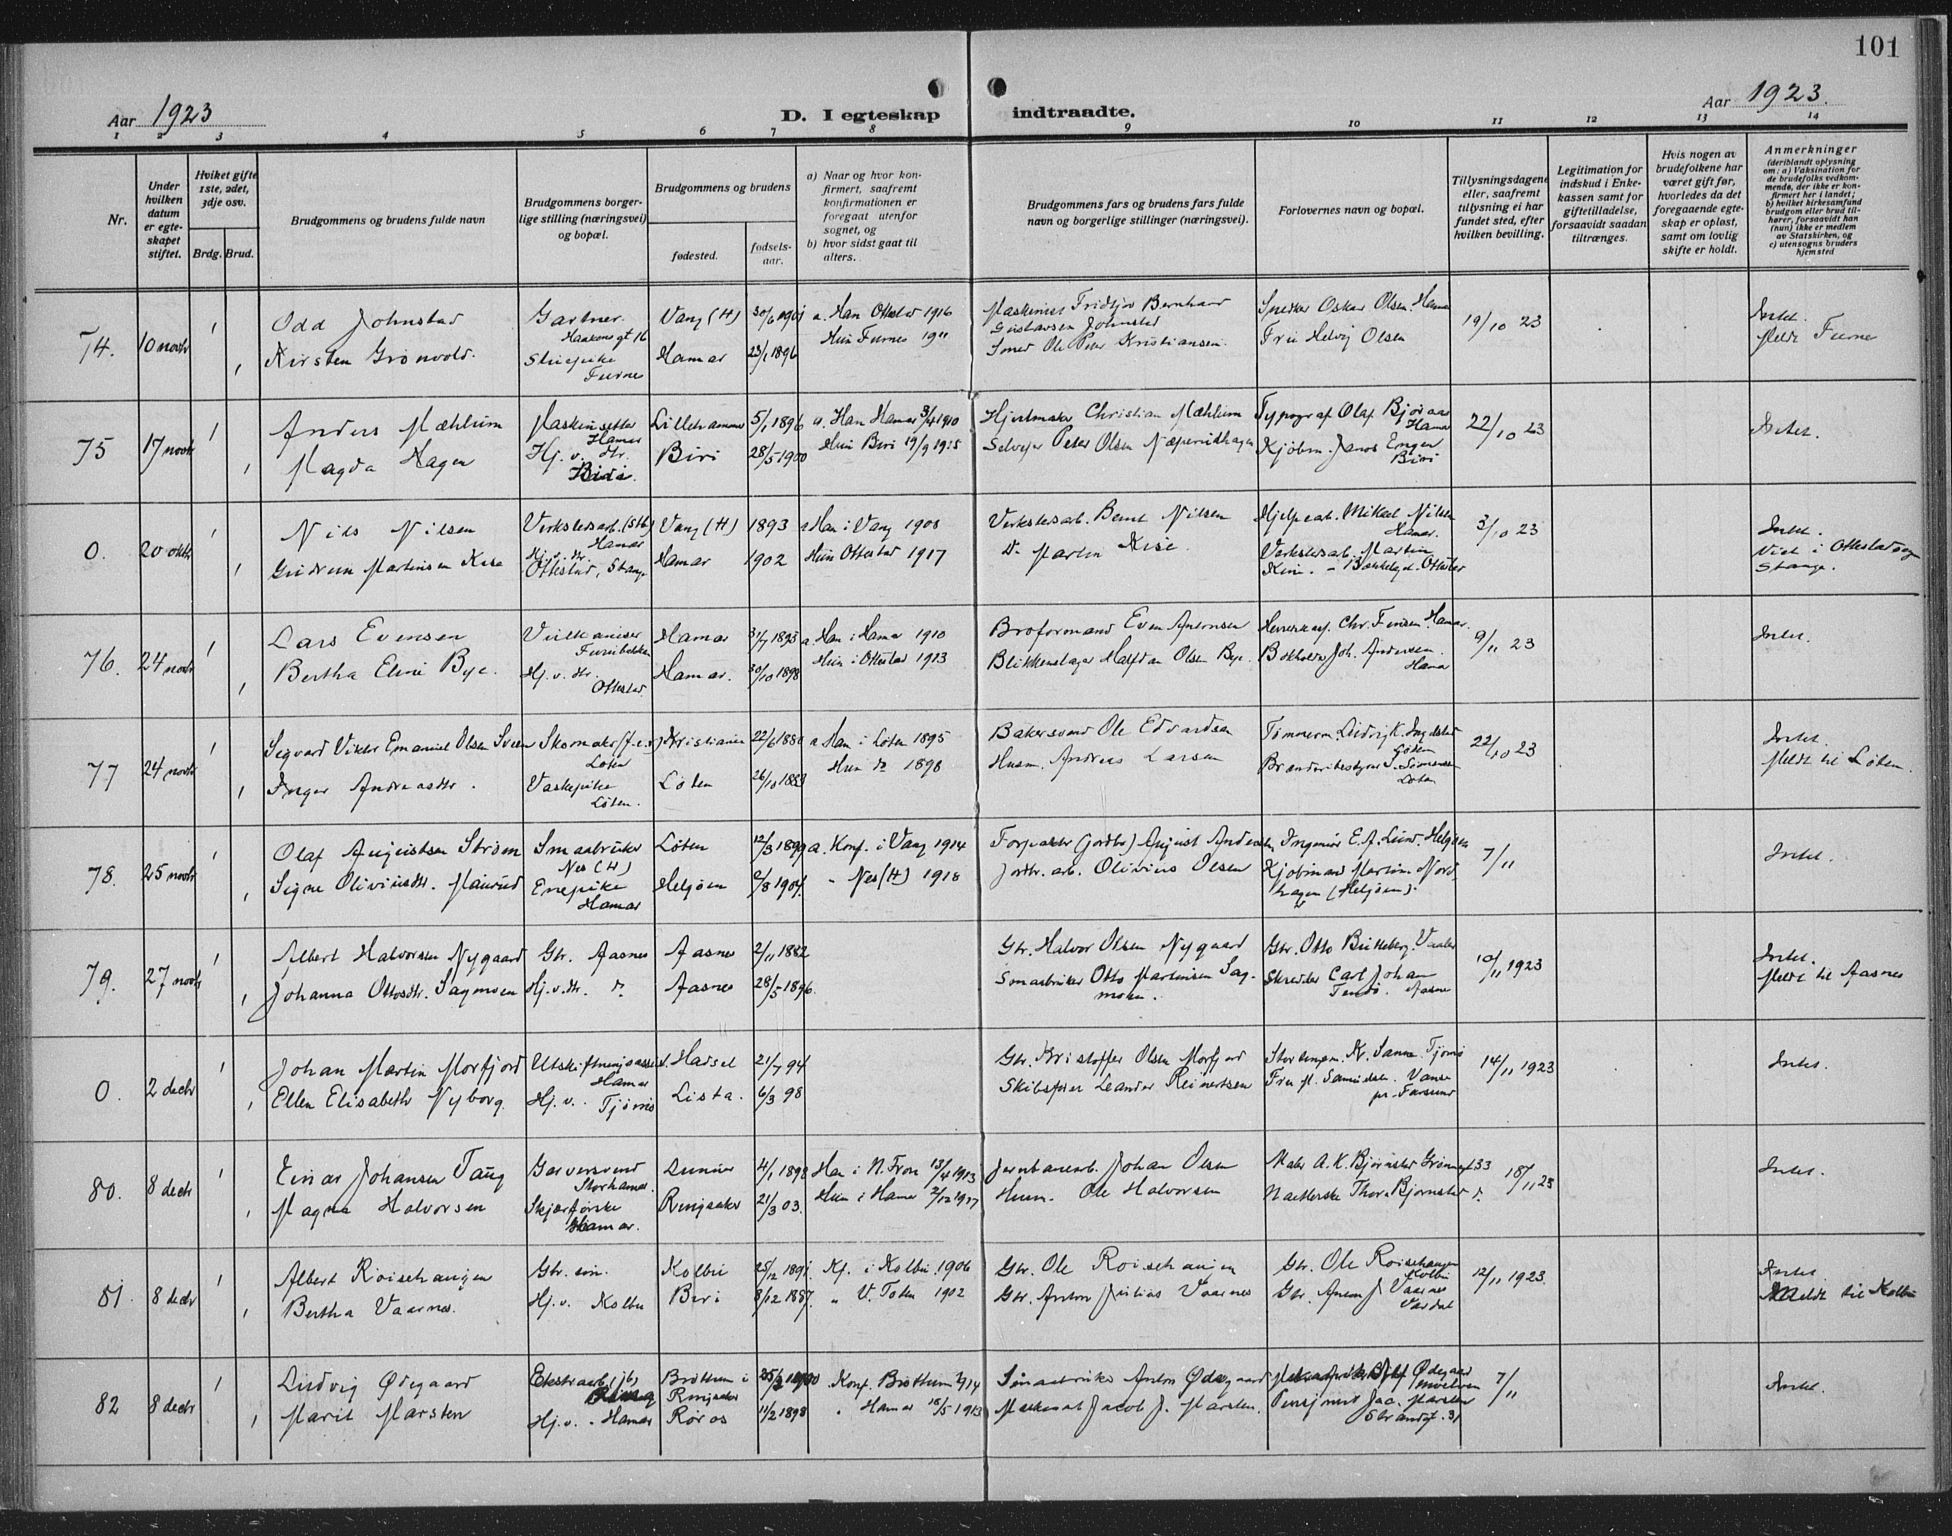 101
Aar 1923
D. I egteskap indtraadte.
Aar 1923.
1 2 3 4 5 6 7 8 9 10 11 12 13 14
Nr.
Under hvilken datum er egteskapet stiftet.
Hvilket gifte 1ste, 2det, 3dje osv.
Brdg. Brud.
Brudgommens og brudens fulde navn
Brudgommens borgerlige stilling (næringsvei) og bopæl.
Brudgommens og brudens
fødested.
fødselsaar.
a) Naar og hvor konfirmert, saafremt konfirmationen er foregaat utenfor sognet, og
b) hvor sidst gaat til alters.
Brudgommens fars og brudens fars fulde navn og borgerlige stillinger (næringsvei).
Forlovernes navn og bopæl.
Tillysningsdagene eller, saafremt tillysning ei har fundet sted, efter hvilken bevilling.
Legitimation for indskud i Enkekassen samt for giftetilladelse, forsaavidt saadan tiltrænges.
Hvis nogen av brudefolkene har været gift før, hvorledes da det foregaaende egteskap er opløst, samt om lovlig skifte er holdt.
Anmerkninger
(deriblandt oplysning om: a) Vaksination for de brudefolks vedkommende, der ikke er konfirmert her i landet; b) hvilket kirkesamfund brudgom eller brud tilhører, forsaavidt han (hun) ikke er medlem av Statskirken, og c) utensogns bruders hjemsted
74. 10 novbr 1 Odd Johnstad Gartner. Haakonsgt 16 Vang (H) 30/6 1901 a. Han Ottestad 1916 Maskinist Fridtjov Bernhard Gustavsen Johnstad Snedker Oskar Olsen. Hamar 19/10 23 Intet.
1 Kirsten Grønvold. Skiepike Furnes Hamar 23/1 1896 Hun Furnes 1911 Smed Ole Peter Kristiansen. Fru Helvig Olsen Meldt Furnes
75 17 novbr 1 Anders Mæhlum Maskinsetter Hamar Lillehammer 5/1 1896 a. Han Hamar 3/4 1910 Hjulmaker Christian Mæhlum Typograf Olaf Bjøraas Hamar 22/10 23 Intet.
1 Magda Hagen Hj. v. Hr. Biri. Biri 28/5 1900 Hun Biri 19/9 1915 Selveier Peter Olsen Næperudhagen Kjøbm. Jens Enger Biri
0. 20 oktbr 1 Nils Nilsen Verkstedsarb. (Stb) Hamar Vang (H) 1893 a Han i Vang 1908 Verkstedsarb. Bernt Nilsen Hjelpearb. Mikael Nilsen Hamar. 3/10 23 Intet.
1 Gudrun Martinsen Kise Hj. v. Hr Ottestad, Stange Hamar 1902 Hun Ottestad 1917 Do Martin Kise. Verkstedsarb. Martin Kise. - Bækkelyd. Ottestad Viet i Ottestad sogn Stange.
76. 24 novbr 1 Lars Evensen Vulkaniser Furubakken Hamar 31/7 1893 a Han i Hamar 1910 Broformand Even Antonsen Chr. Finsen. Hamar. 9/11 23 Intet.
1 Bertha Eline Bye. Hj. v. Hr. Ottestad. Hamar. 30/10 1898 Hun i Ottestad 1913 Blikkenslager Halfdan Olsen Bye. Bokholder Joh. Andersen. Hamar
77 24 novbr 1 Sigvard Viktor Emanuel Olsen Sveen Skomaker Løten Kristiania 22/6 1880 a Han i Løten 1895 Bakersvend Ole Edvardsen Tømmerm. Ludvig K. Ingelstad Løten 22/10 23 Intet.
1 Inger Andreasdtr. Vaskepike Løten. Løten 26/10 1883 Hun do 1898 Husm. Andreas Larsen Brænderibestyrer S. Simensen Løten Meldt til Løten.
78. 25 novbr 1 Olaf Augustsen Strøm Smaabruker Nes (H) Løten 12/3 1899 a. Konf. i Vang 1914 Forpakter (jordbr) August Andersen Ingeniør E. A. Lund. Helgøen 7/11 Intet.
1 Signe Oliviusdtr. Maurud Enepike Hamar Helgøen 2/8 1904. " Nes (H) 1918 Jordbr. arb. Olivius Olsen Kjøbmand Martin Nordhagen (Helgøen).
79. 27 novbr 1 Albert Halvorsen Nygaard Gbr. Aasnes Aasnes 2/11 1882 Gbr. Halvor Olsen Nygaard Gbr. Otto Butteberg. Vaaler 10/11 1923 Intet.
1 Johanna Ottosdtr. Sagmoen Hj. v. Hr. do Aasnes 28/5 1896. Smaabruker Otto Martinsen Sagmoen. Skrædder Carl Johan Aasnes Meldt til Aasnes
0. 2 decbr 1 Johan Martin Morfjord Utskiftningsassist. Hamar Hadsel 21/7 94 Gbr. Kristoffer Olsen Morfjord Kr. Sanne. Tjømø 14/11 1923 Intet.
1 Ellen Elisabeth Nyborg Hj. v. Tjømø Lista. 6/3 98 Skibsfører Leander Reinertsen Fru M. Samuelsen. Vanse pr. Farsund
80. 8 decbr 1 Einar Johansen Taug Garversvend Storhamar. Lunner 4/1 1892 Han i N. Fron 13/4 1913 Jernbanearb. Johan Olsen Maler A. K. Bjørnstad Grønnegt 33 18/11 23 Intet.
1 Magna Halvorsen Skjærførske Hamar. Ringsaker 21/3 03. Hun i Hamar 2/12 1917 Husm. Ole Halvorsen Thora Bjørnstad do.
81. 8 decbr 1 Albert Røisehaugen Gbr. søn. Kolbu 25/12 1891. Kf. i Kolbu. 1906 Gbr. Ole Roisehaugen Gbr. Ole Roisehaugen Kolbu 12/11 1923. Intet.
1 Bertha Vaarnes. Hj. v. Kolbu Biri 8/12 1887. " V. Toten 1902 Gbr. Anton Julius Vaarnes Gbr. Anton J. Vaarnes Vardal Meldt til Kolbu
82 8 decbr 1 Ludvig Ødegaard Ekstraarb. (jb) Ring Brøttum i Ringsaker 25/2 1900 Konf. Brøttum 1914 Smaabruker Anton Ødegaard Ødegaard 7/11 Intet.
1 Marit Marsten Hj. v. - Hamar Røros 11/2 1898 " Hamar 18/5 1913 Jacob J. Marsten. Pensjonist Jac. Marsten Strandgt. 31